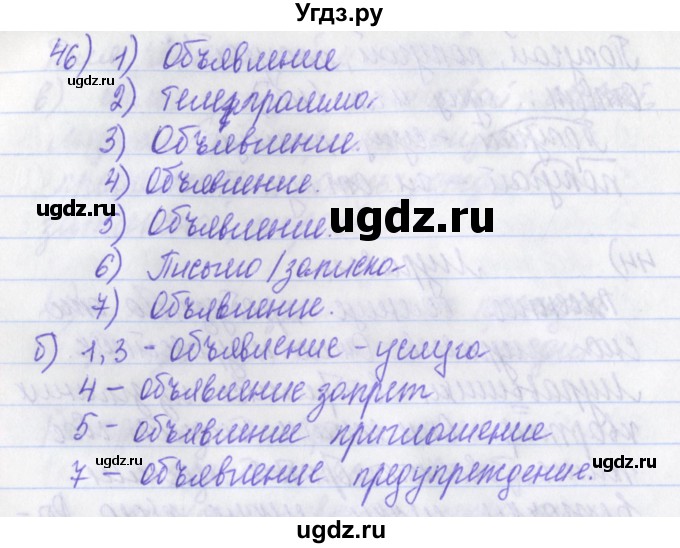 Угдз.ру
46) 1) Объявление
ugdz.ru
2) Телеграмма.
3) Объявление.
4) Объявление.
ugdz.ru ugdz.ru ugdz.ru
5) Объявление.
6) Письмо/записка
7) Объявление.
б) 1,3 - объявление - услуга
4 - объявление запрет
5 - объявление приглашение
ugdz.ru ugdz.ru ugdz.ru
7 - объявление предупреждение.
ugdz.ru